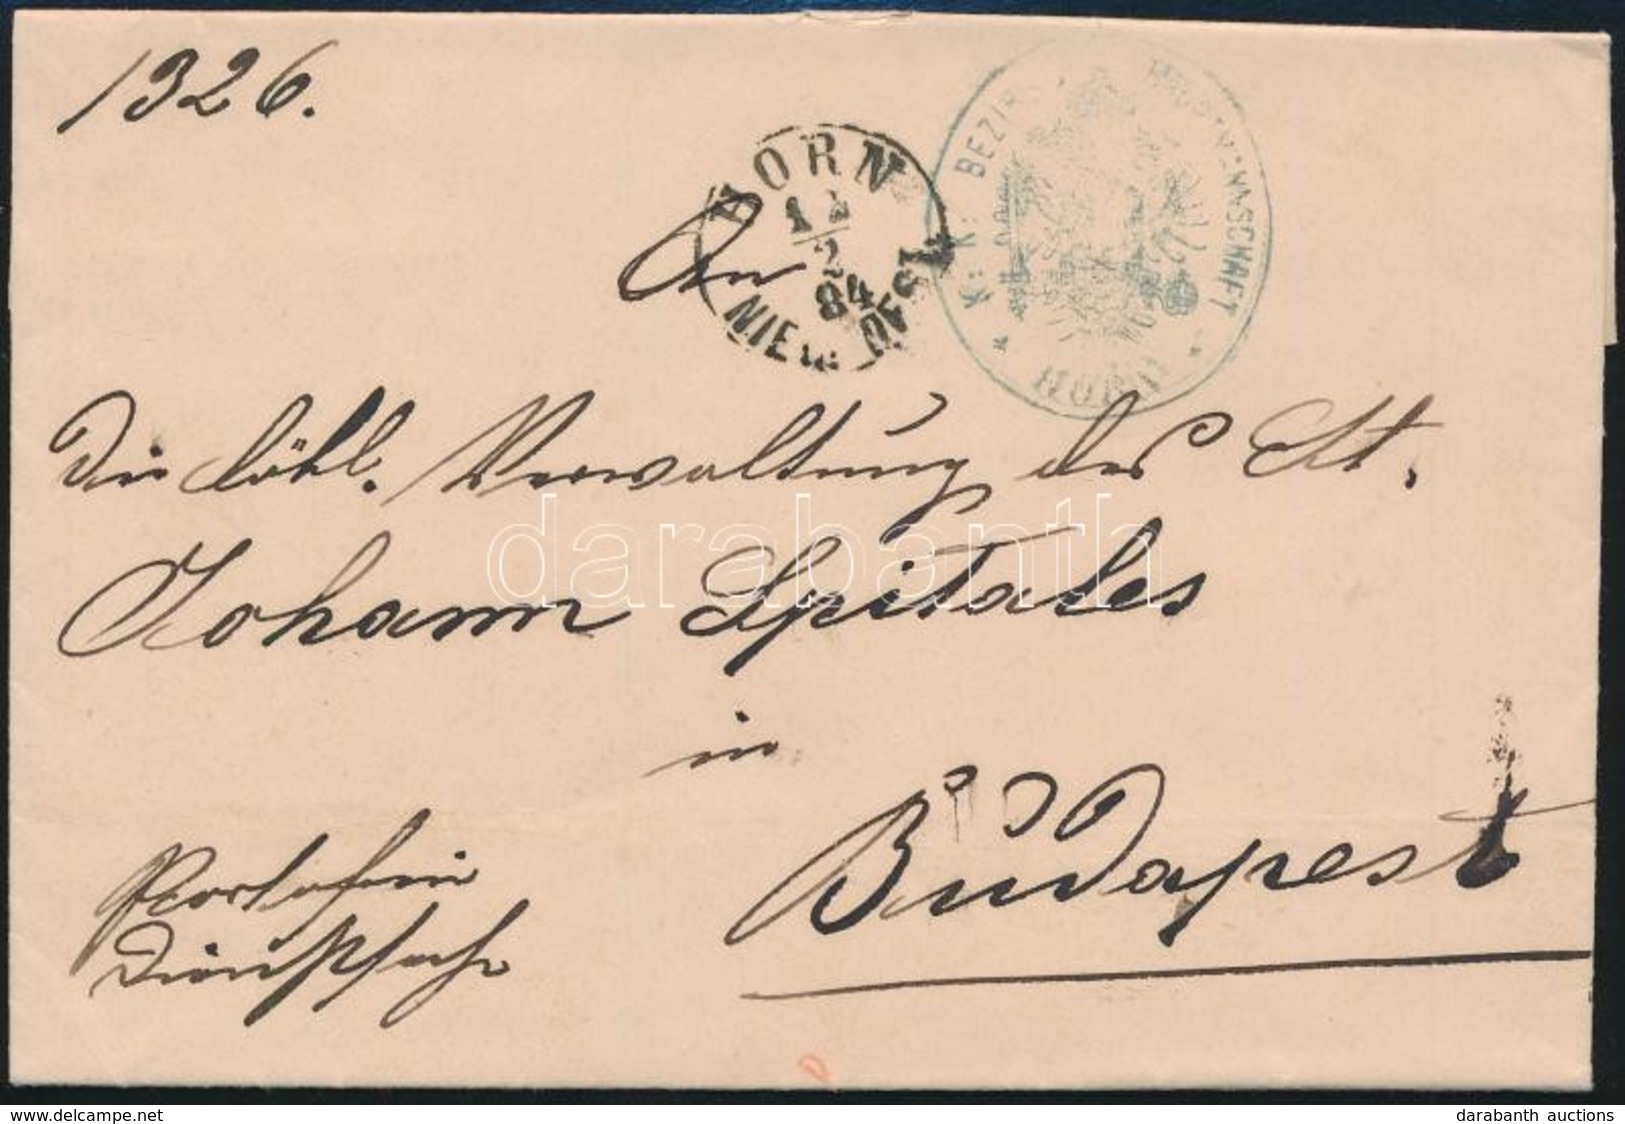 1326.
HORN
11/2
84
NIED. ÖST.
K: K: BEZIRKSHAUPTMANNSCHAFT
HORN
An
Die löbl. Verwaltung des St.
Johann Spitales
in
Budapest
Portofreie
Dienstsache
darabanth
delcampe.net
darabanth auctions